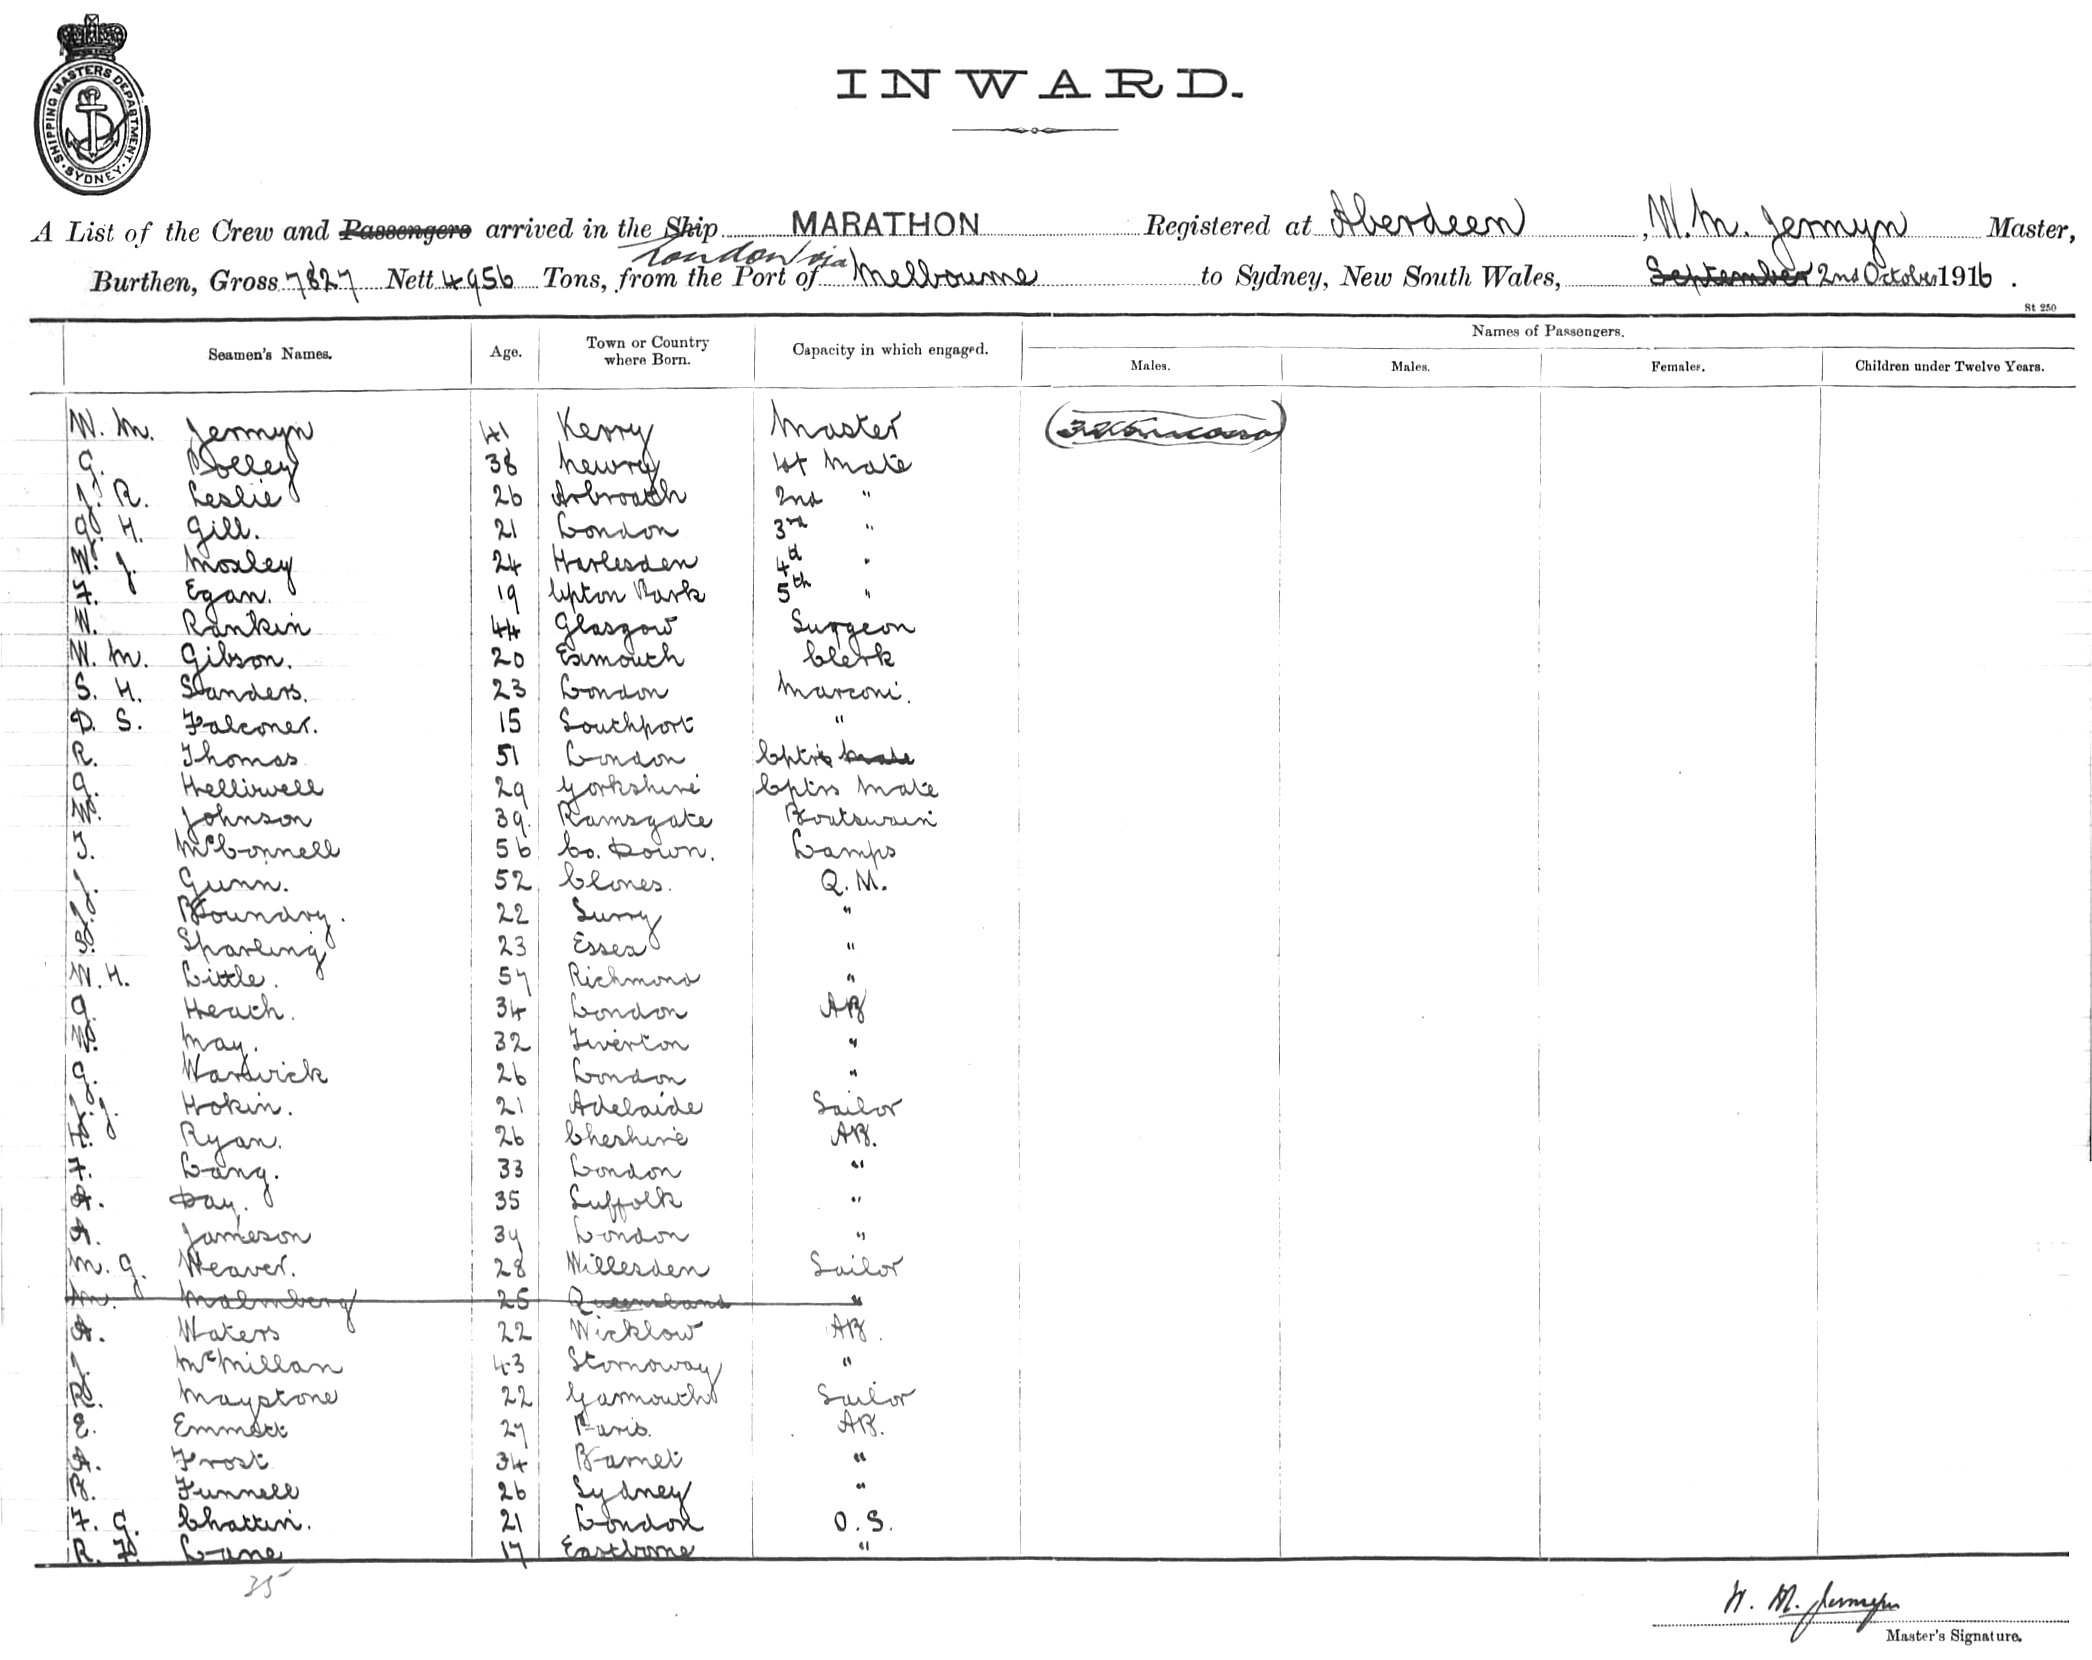 INWARD.
SHIPPING MASTERS DEPARTMENT · SYDNEY ·
A List of the Crew and Passengers arrived in the Ship MARATHON Registered at Aberdeen, W. M. Jermyn Master,
London via
Burthen, Gross 7827 Nett 4956 Tons, from the Port of Melbourne to Sydney, New South Wales, September 2nd October 1916.
St 250
Seamen's Names. Age. Town or Country where Born. Capacity in which engaged. Names of Passengers.
Males. Males. Females. Children under Twelve Years.
W. M. Jermyn 41 Kerry Master
G. Bolley 38 Newry 1st Mate
J. R. Leslie 26 Arbroath 2nd "
G. H. Gill. 21 London 3rd "
W. J. Moxley 24 Harlesden 4d "
F. Egan. 19 Upton Park 5th "
W. Rankin 44 Glasgow Surgeon
W. M. Gibson. 20 Exmouth Clerk
S. H. Sanders. 23 London Marconi.
D. S. Falconer. 15 Southport "
R. Thomas 51 London Cptrs Mate
G. Helliwell 29 Yorkshire Cptrs Mate
W. Johnson 39. Ramsgate Boatswain
J. McConnell 56 Co. Down. Lamps
J. Gunn. 52 Clones. Q.M.
J. Boundry. 22 Surry "
S. Sparling 23 Essex "
W. H. Little. 57 Richmond "
G. Heach. 34 London AB
W. May. 32 Tiverton "
G. Warwick 26 London "
J. J. Hokin. 21 Adelaide Sailor
H. Ryan. 26 Cheshire AB.
F. Lang. 33 London "
A. Day. 35 Suffolk "
A. Jameson 39 London "
M. G. Weaver. 28 Willesden Sailor
M. Malmberg 25 Queensland "
A. Waters 22 Wicklow AB.
J. McMillan 43 Stornoway "
R. Maystone 22 Yarmouth Sailor
E. Emmett 27 Paris. AB.
A. Frost 34 Barnet "
B. Funnell 26 Sydney "
F. G. Chattin. 21 London O.S.
R. F. Lane 17 Eastborne "
35
W. M. Jermyn
Master's Signature.